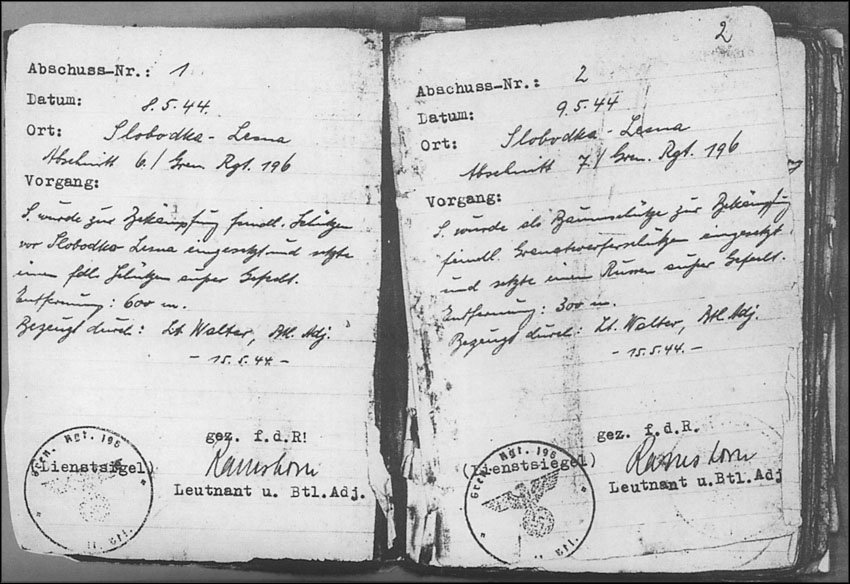 Abschuss-Nr.: 1
Datum: 8.5.44.
Ort: Slobodka - Lesna
Abschnitt 6./ Gren. Rgt. 196
Vorgang:
S. wurde zur Bekämpfung feindl. Schützen
vor Slobodka Lesna eingesetzt und setzte
einen fdl. Schützen außer Gefecht.
Entfernung: 600 m.
Bezeugt durch: Lt. Walter, Btl. Adj.
- 15.5.44 -
gez. f.d.R!
(Dienstsiegel)
Ramshorn
Leutnant u. Btl.Adj.
Gren. Rgt. 196
II. Btl.
2
Abschuss-Nr.: 2
Datum: 9.5.44
Ort: Slobodka - Lesna
Abschnitt 7./ Gren. Rgt. 196
Vorgang:
S. wurde als Baumschütze zur Bekämpfung
feindl. Granatwerferschützen eingesetzt
und setzte einen Russen außer Gefecht.
Entfernung: 300 m.
Bezeugt durch: Lt. Walter, Btl. Adj.
- 15.5.44. -
gez. f.d.R.
(Dienstsiegel)
Ramshorn
Leutnant u. Btl.Adj
Gren. Rgt. 196
II. Btl.